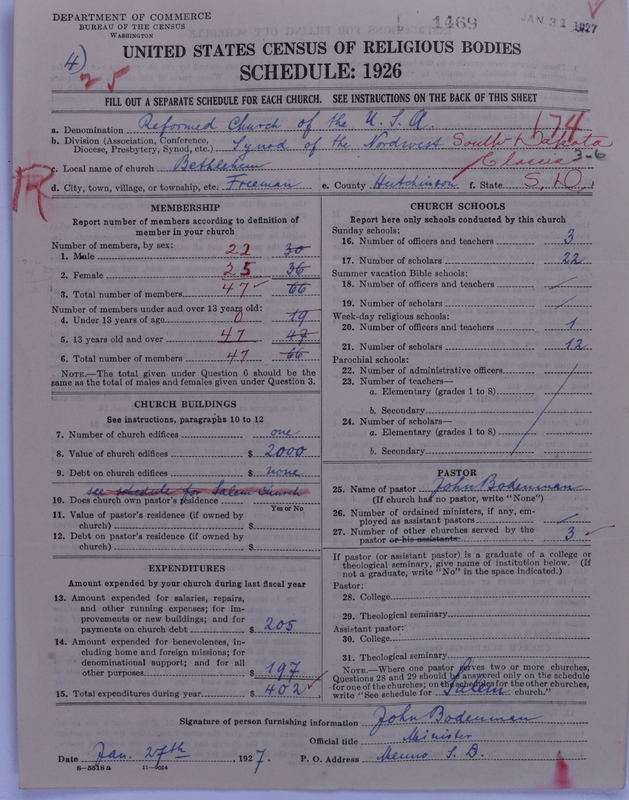 DEPARTMENT OF COMMERCE
BUREAU OF THE CENSUS
WASHINGTON
1469
JAN 31 1927
4)
25
UNITED STATES CENSUS OF RELIGIOUS BODIES
SCHEDULE: 1926
FILL OUT A SEPARATE SCHEDULE FOR EACH CHURCH. SEE INSTRUCTIONS ON THE BACK OF THIS SHEET
174
a. Denomination Reformed Church of the U. S. A.
b. Division (Association, Conference, Diocese, Presbytery, Synod, etc.) Synod of the Nordwest South Dakota
Classis 3-6
c. Local name of church
d. City, town, village, or township, etc. Freeman e. County Hutchinson f. State S. D.
R
MEMBERSHIP
Report number of members according to definition of
member in your church
Number of members, by sex:
1. Male 22 30
2. Female 25 36
3. Total number of members 47 66
Number of members under and over 13 years old:
4. Under 13 years of age 0 19
5. 13 years old and over 47 47
6. Total number of members 47 66
NOTE.—The total given under Question 6 should be
same as the total of males and females given under Question 3.
CHURCH BUILDINGS
See instructions, paragraphs 10 to 12
7. Number of church edifices one
8. Value of church edifices $ 2000
9. Debt on church edifices $ none
see schedule for Salem Church
10. Does church own pastor's residence
Yes or No
11. Value of pastor's residence (if owned by
church) $
12. Debt on pastor's residence (if owned by
church) $
EXPENDITURES
Amount expended by your church during last fiscal year
13. Amount expended for salaries, repairs,
and other running expenses; for im-
provements or new buildings; and for
payments on church debt $ 205
14. Amount expended for benevolences, in-
cluding home and foreign missions; for
denominational support; and for all
other purposes $ 197
15. Total expenditures during year $ 402
CHURCH SCHOOLS
Report here only schools conducted by this church
Sunday schools:
16. Number of officers and teachers 3
17. Number of scholars 22
Summer vacation Bible schools:
18. Number of officers and teachers
19. Number of scholars
Week-day religious schools:
20. Number of officers and teachers 1
21. Number of scholars 12
Parochial schools:
22. Number of administrative officers
23. Number of teachers—
a. Elementary (grades 1 to 8)
b. Secondary
24. Number of scholars—
a. Elementary (grades 1 to 8)
b. Secondary
PASTOR
25. Name of pastor John Bodenman
(If church has no pastor, write "None")
26. Number of ordained ministers, if any, em-
ployed as assistant pastors
27. Number of other churches served by the
pastor or his assistants 3
If pastor (or assistant pastor) is a graduate of a college or
theological seminary, give name of institution below. (If
not a graduate, write "No" in the space indicated.)
Pastor:
28. College
29. Theological seminary
Assistant pastor:
30. College
31. Theological seminary
NOTE.—Where one pastor serves two or more churches,
Questions 28 and 29 should be answered only on the schedule
for one of the churches; on the schedules for the other churches,
write "See schedule for Salem church."
Signature of person furnishing information John Bodenman
Official title Minister
Date Jan. 27th, 1927. P. O. Address Menno S. D.
8—5518 a